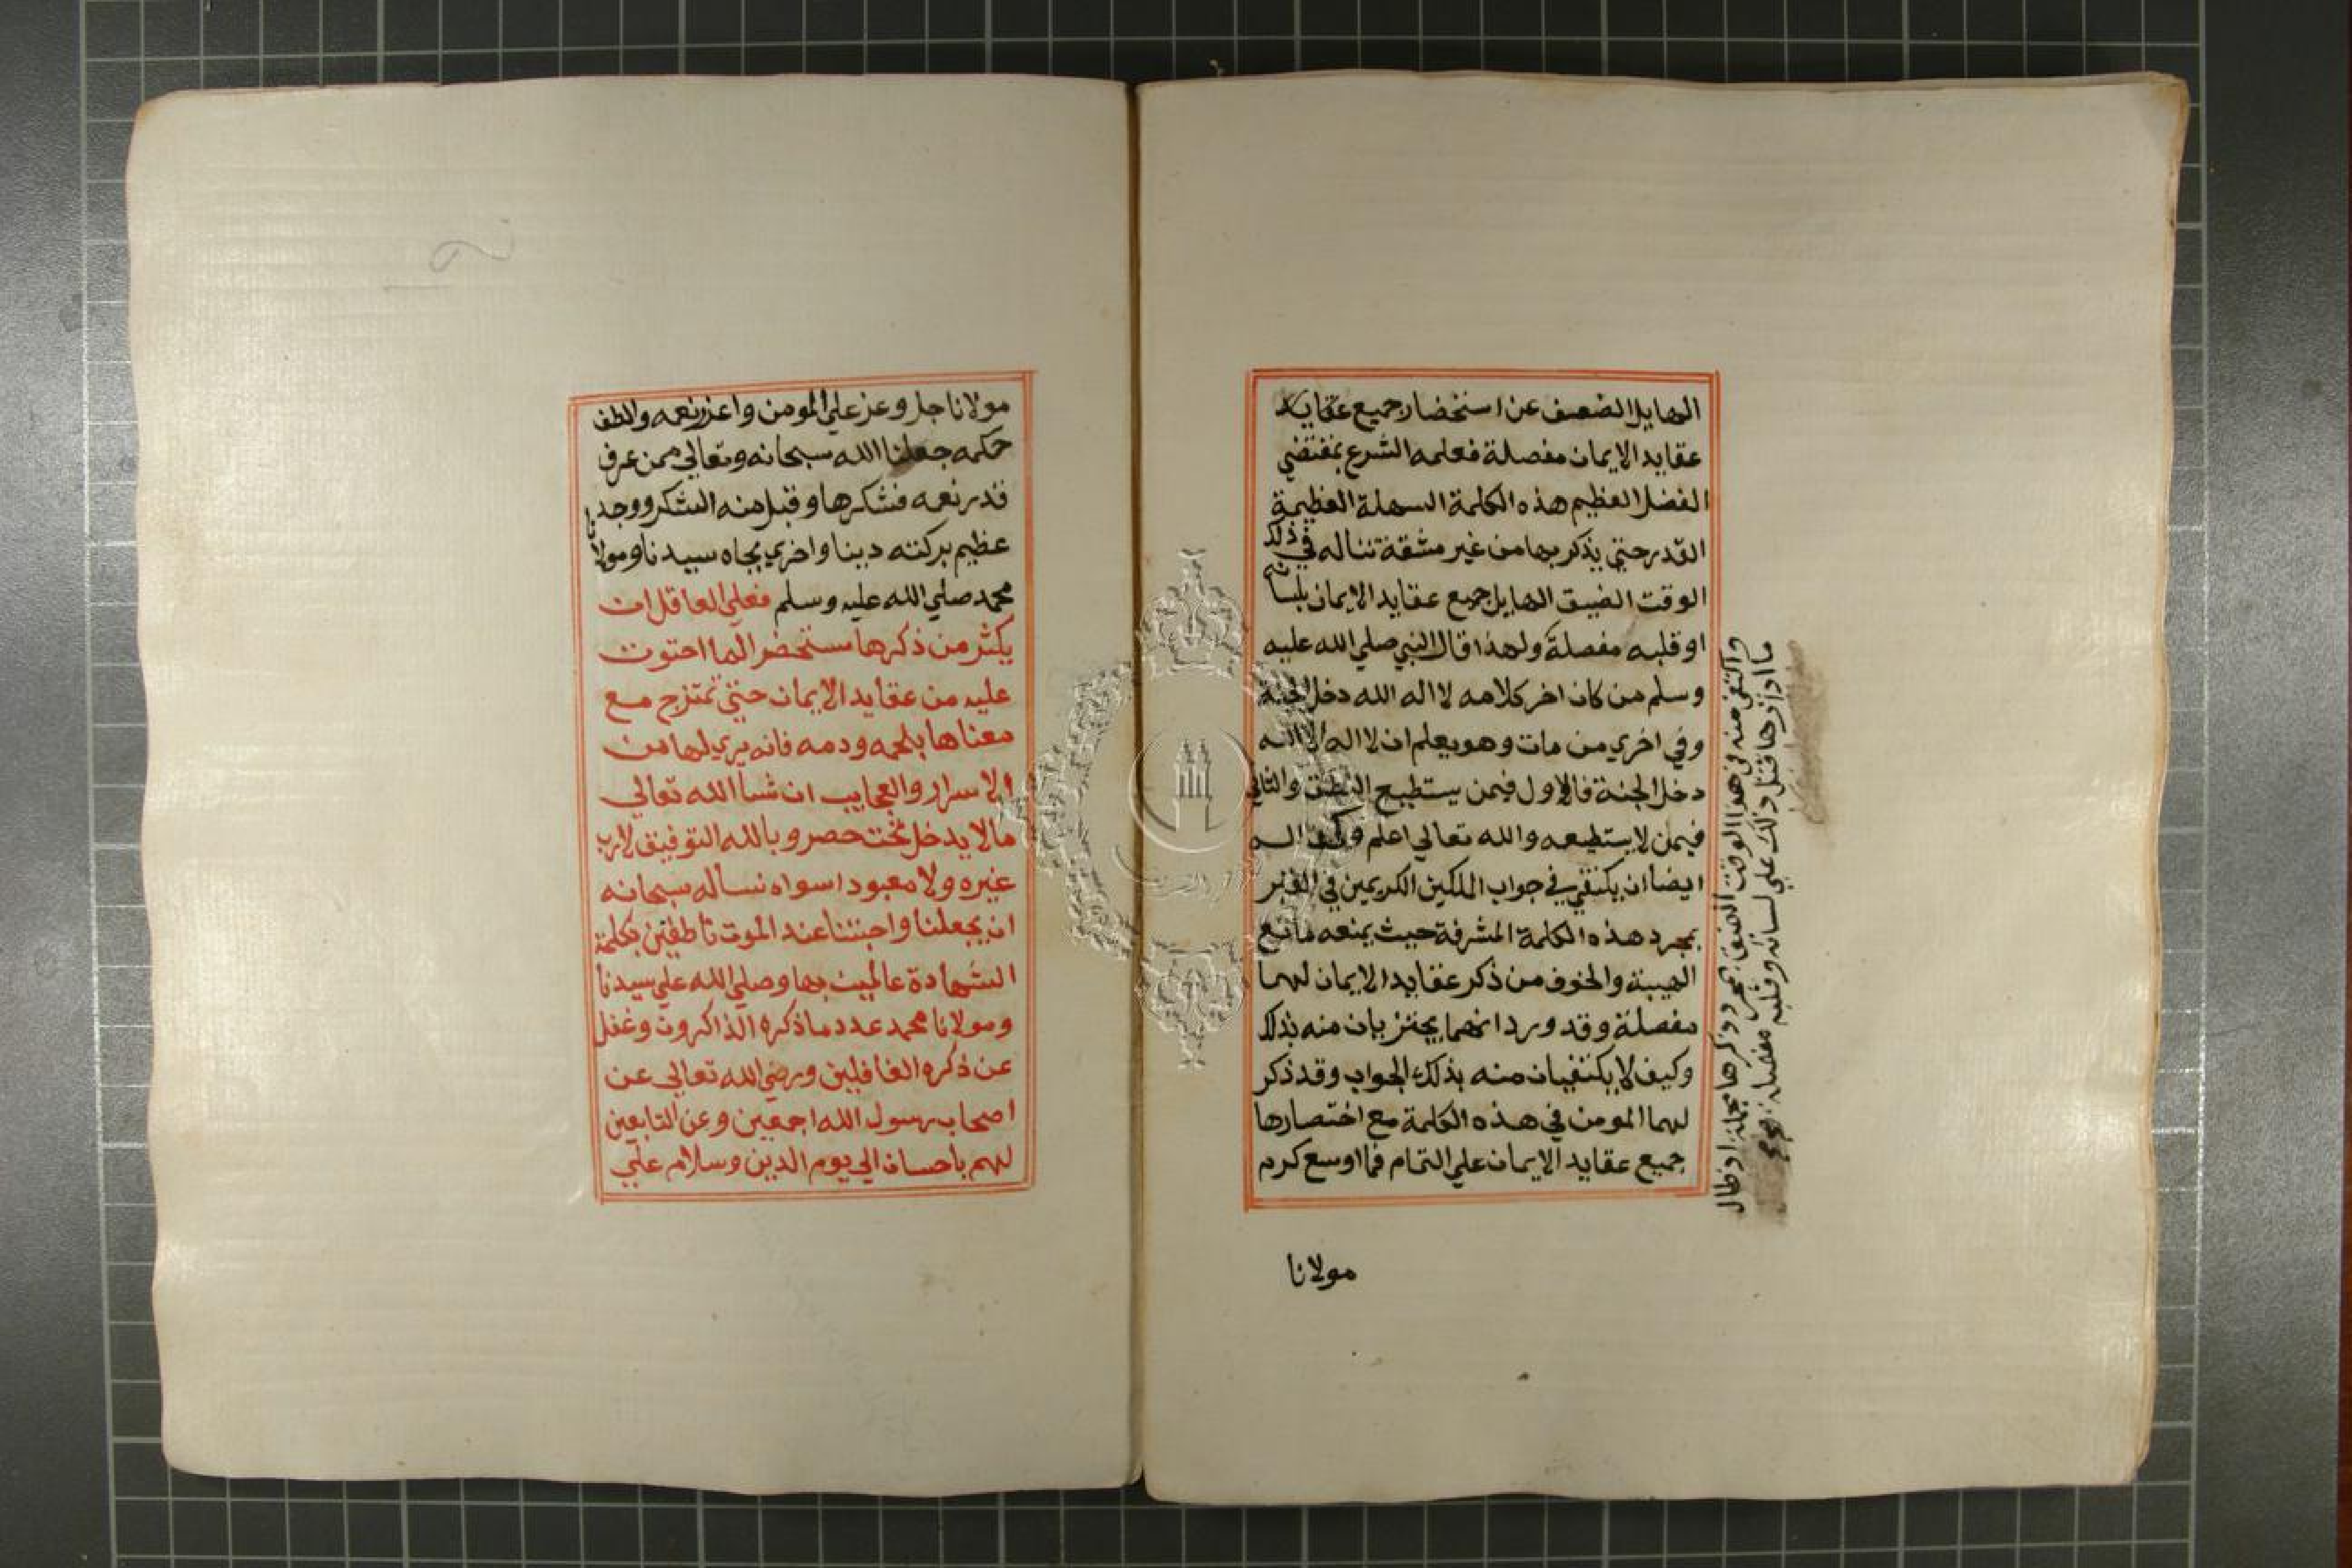 الهايل الضعيف عن استحضار جميع عقايد
عقايد الايمان مفصلة فعلمه الشرع بمقتضي
الفضل العظيم هذه الكلمة السهلة العظيمة
القدر حتي يذكر بها من غير مشقة تناله في ذلك
الوقت الضيق الهايل جميع عقايد الايمان بلسانه
او قلبه مفصلة ولهذا قال النبي صلي الله عليه
وسلم من كان اخر كلامه لا اله الله دخل الجنة
وفي اخري من مات وهو يعلم ان لا اله الا الله
دخل الجنة فالاول فيمن يستطيع النطق والثاني
فيمن لا يستطيعه والله تعالي اعلم وكذا له
ايضا ان يكتفي في جواب الملكين الكريمين في القبر
بمجرد هذه الكلمة المشرفة حيث يمنعه مانع
الهيبة والخوف من ذكر عقايد الايمان لهما
مفصلة وقد ورد انهما يجتزيان منه بذلك
وكيف لا يكتفيان منه بذلك الجواب وقد ذكر
لهما المومن في هذه الكلمة مع اختصارها
جميع عقايد الايمان علي التمام فما اوسع كرم
واكتفي منه في هذا الوقت الضيق بمجرد ذكرها مجملة اذ طال
ما ادارها قبل ذلك علي لسانه وقلبه مفصلة
مولانا
مولانا جل وعز علي المومن واعزر نعمه والطف
حكمه جعلنا الله سبحانه وتعالي ممن عرف
قدر نعمه فشكرها وقبل منه الشكر ووجد
عظيم بركته دينا واخري بجاه سيدنا ومولانا
محمد صلي الله عليه وسلم فعلي العاقل ان
يكثر من ذكرها مستحضرا لما احتوت
عليه من عقايد الايمان حتي تمتزج مع
معناها بلحمه ودمه فانه يري لها من
الاسرار والعجايب ان شا الله تعالي
ما لا يدخل تحت حصر وبالله التوفيق لا رب
غيره ولا معبود اسواه نساله سبحانه
ان يجعلنا واحبتنا عند الموت ناطقين بكلمة
الشهادة عالمين بها وصلي الله علي سيدنا
ومولانا محمد عدد ما ذكره الذاكرون وغفل
عن ذكره الغافلين ورضي الله تعالي عن
اصحاب رسول الله اجمعين وعن التابعين
لهم باحسان الي يوم الدين وسلام علي